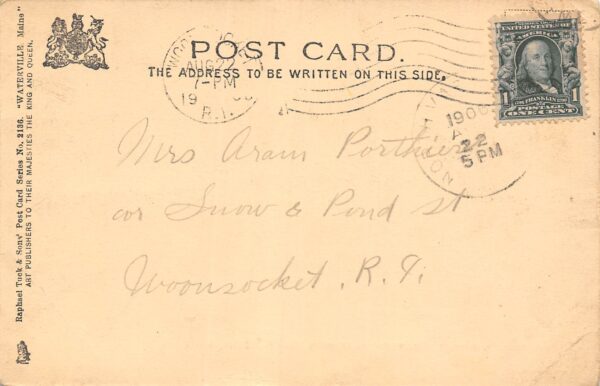 POST CARD.
THE ADDRESS TO BE WRITTEN ON THIS SIDE.
Raphael Tuck & Sons' Post Card Series No. 2136. "WATERVILLE, Maine"
ART PUBLISHERS TO THEIR MAJESTIES THE KING AND QUEEN.
AUG 22
7-PM
19
R.I.
UNITED STATES OF
AMERICA
1 1
FRANKLIN
POSTAGE
ONE CENT
1906
22
5 PM
Mrs Aram Porthier
cor Snow & Pond st
Woonsocket. R. I.